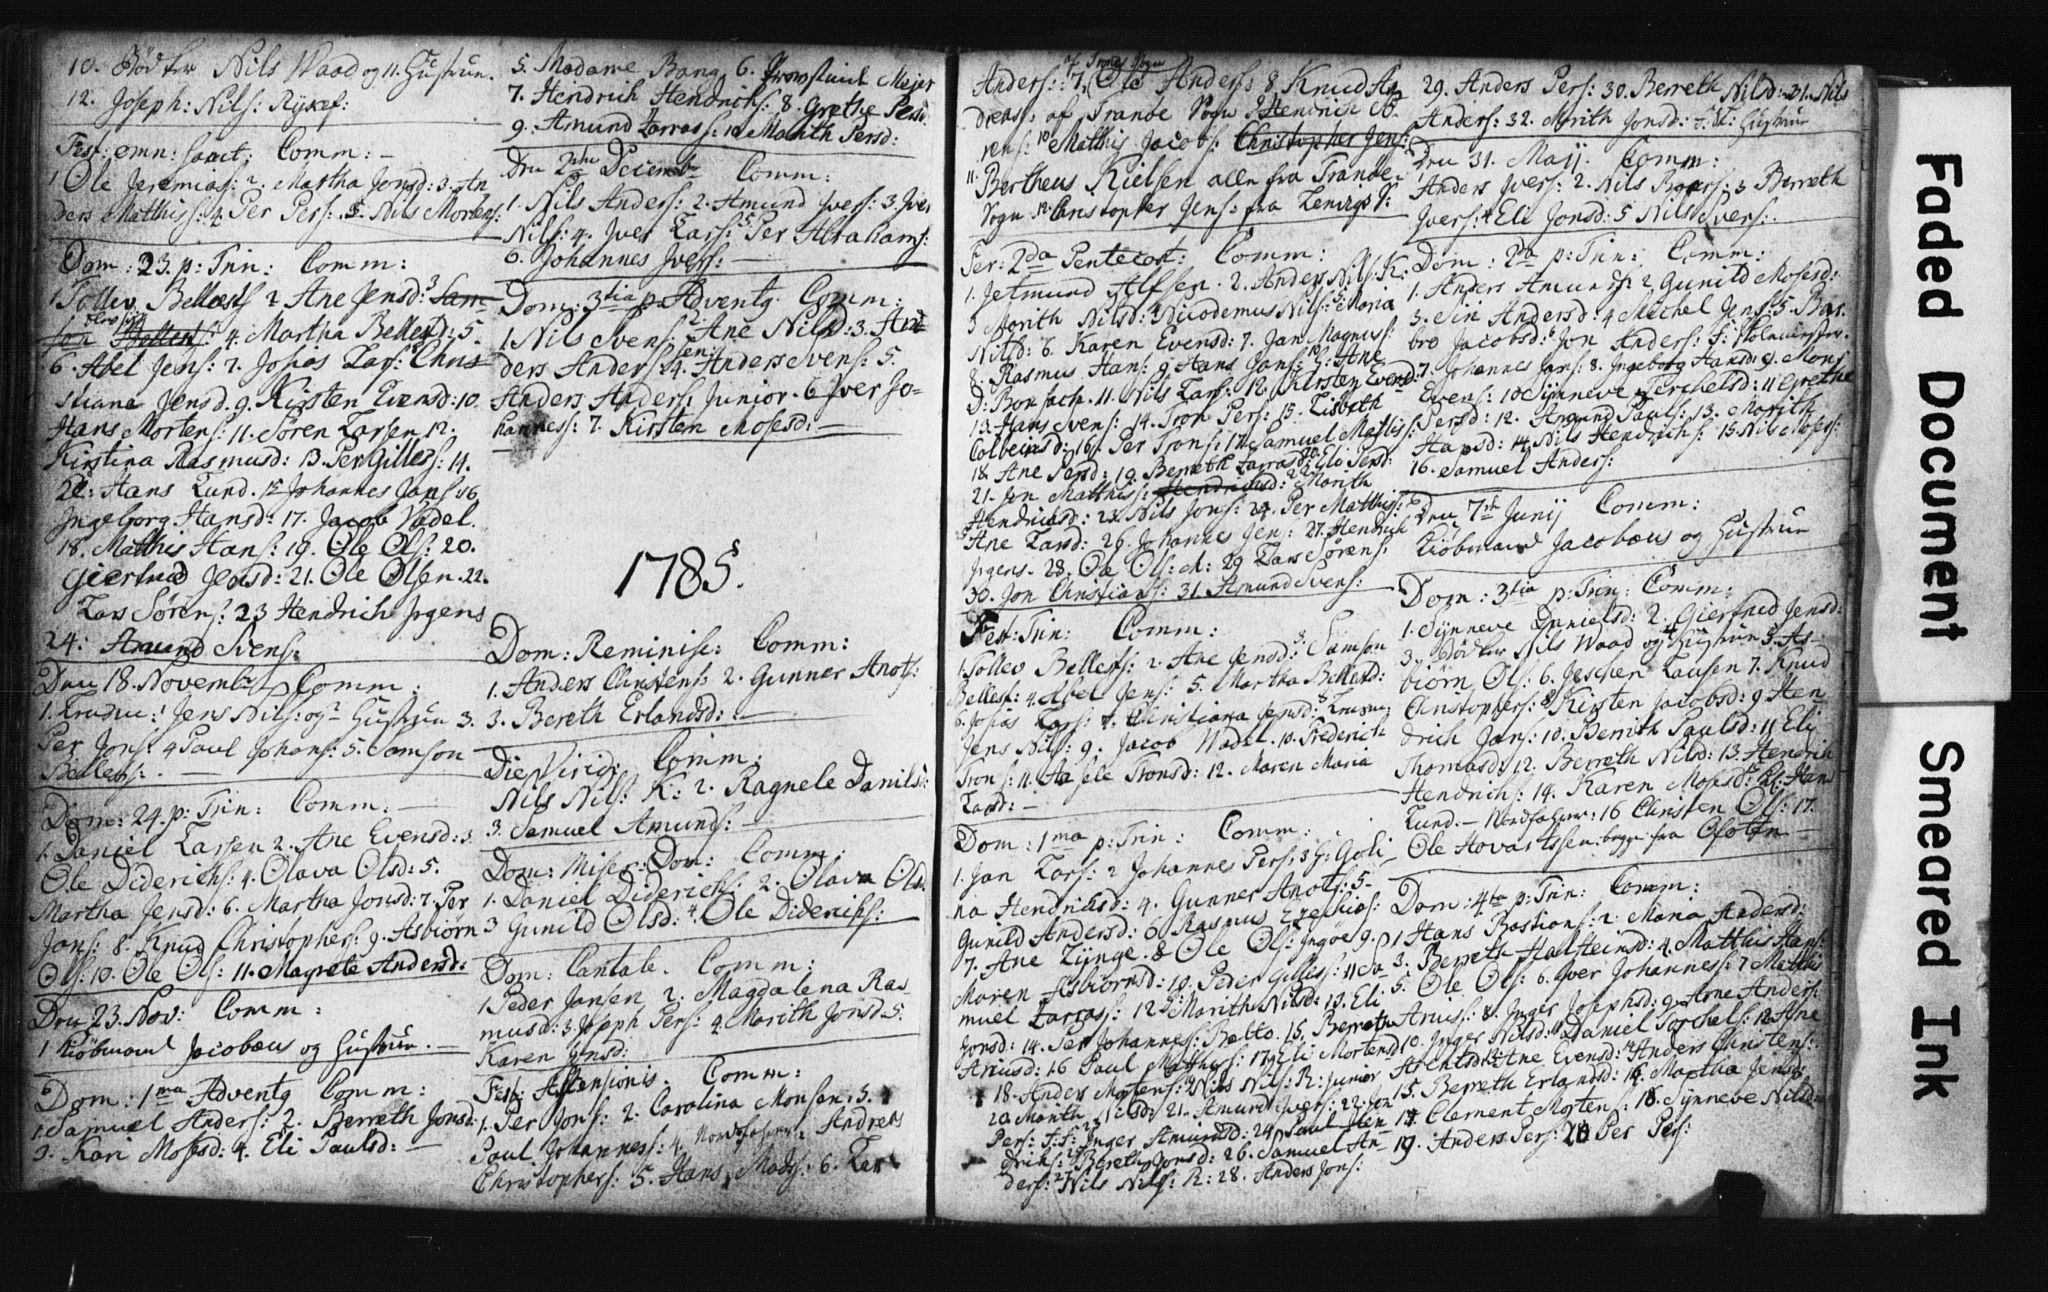 10. Bødker Nils Waad og 11. Hustrue.
12. Joseph: Nils: Ryssef:
Fest: omn: Sanct: Comm: —
1 Ole Jeremias: 2. Martha Jonsd: 3. An
ders Matthis: 4. Per Pers: 5. Nils Mortens:
Dom: 23. p: Trin: Comm:
1 Tollev Bellests 2 Ane Jensd: 3 Sam-
son Bellest: 4. Martha Bellestd: 5.
6. Abel Jens: 7. Josias Lars: 8 Chris
tiane Jensd. 9. Kirsten Evensd: 10.
Hans Mortens: 11. Sören Larsen 12.
Kirstina Rasmusd: 13. Per Gilless: 14.
Hans Lund. 15 Johannes Jans: 16
Ingeborg Hansd: 17. Jacob Wadel.
18. Matthis Hans: 19. Ole Ols: 20.
Giertrud Jensd: 21. Ole Olsen. 22.
Lars Sörens: 23 Hendrich Jrgens
24: Amund Svens:
Den 18. Novembr Comm:
1. Jens Nils: og 2 Hustrue 3.
Per Jons: 4 Paul Johans: 5. Samson
Bellests: —
Dom: 24. p: Trin: Comm: —
1. Daniel Larsen 2. Ane Evensd: 3.
Ole Diderichs: 4. Olava Olsd: 5.
Martha Jensd: 6. Martha Jonsd: 7. Per
Jons: 8. Knud Christophers: 9. Asbiörn
Ols: 10. Ole Ols: 11. Magrete Andersd:
Den 23. Nov: Comm:
1 Kiöbmand Jacobæus og Hustrue. —
Dom: 1ma Adventg Comm:
1. Samuel Anders: 2. Berreth Jonsd:
3. Kari Mosesd: 4. Eli Paulsd: —
5. Madame Bang 6. Meyer
7. Hendrich Hendrichs: 8. Grethe Persd
9. Amund Larras: 10 Marith Persd:
Den 2den Decembr Comm:
1. Nils Anders: 2. Amund Ivers: 3 Iver
Nils: 4. Iver Lars: 5 Per Abrahams:
6. Johannes Ivers: —
Dom: 3tia p: Adventg. Comm:
1. Nils Svens: 2. Ane Nilsd: 3. An
ders Anders: sen: 4. Anders Svens: 5.
Anders Anders: Junior. 6 Iver Jo-
hanness: 7. Kirsten Mosesd: —
1785.
Dom: Reminisc: Comm:
1. Anders Christens: 2. Gunner Anots:
3. Bereth Erlandsd: —
Die Virid: Comm:
Nils Nils: K: 2. Ragnele Daniels:
3. Samuel Amunds: —
Dom: Miser: Dom: Comm:
1. Daniel Diderichs. 2. Olava Olsd.
3 Gunild Olsd: 4. Ole Diderichs:
Dom: Cantate. Comm:
1. Peder Jansen 2. Magdalena Ras
musd: 3 Joseph Pers: 4. Morith Jonsd. 5.
Karen Jonsd:
Fest: Assensionis. Comm:
1. Per Jons: 2. Carolina Monsen. 3.
Paul Johanness: 4. Nordfahrer: Andreas
Christophers: 5. Hans Mads: 6. Lars
Anders: 7. Ole Anders: 8. Knud An
dreass: af Tranöe Sogn 9 Hendrich Sö
rens: 10 Matthis Jacobs: Christopher Jens:
11. Bertheus Nielsen alle fra Tranöe-
Sogn 12. Christopher Jens: fra Lenvigs S:
Fer: 2da Pentecost: Comm:
1. Jetmund Alfsen. 2. Anders Nils: K:
3 Morith Nilsd: 4 Nicodemus Nils: 5 Maria
Nilsd: 6. Karen Evensd: 7. Jan Magnus:
8. Rasmus Hans: 9 Hans Jans: 10 Ane
D: Bonsach. 11. Nils Lars: 12. Kirsten Evensd:
13. Hans Svens: 14. Tron Pers: 15. Lisbeth
Colbeinsd: 16. Per Trons: 17. Samuel Mathis:
18. Ane Persd: 19. Berreth Larrasd: 20. Eli Persd:
21. Jon Matthis: Hendrichsd: 22. Morith
Hendrichsd: 23. Nils Jons: 24. Per Matthis:
25 Ane Larsd: 26. Johannes Jen: 27. Hendrich
Jrgens. 28. Ole Ols: 29 Lars Sörens:
30. Jon Christians: 31. Amund Svens:
Fest: Trin: Comm:
1. Tollev Bellests: 2. Ane Jensd: 3. Samson
Bellest: 4. Abel Jens: 5. Martha Bellestd:
6. Josias Lars: 7. Christiana Jensd: 8
Jens Nils: 9. Jacob Wadel. 10. Frederich
Trons: 11. Aasele Tronsd: 12. Maren Maria
Larsd: —
Dom: 1ma p: Trin: Comm:
1. Jan Lars: 2 Johannes Pers: 3 Goli
na Hendrichsd: 4. Gunner Anots: 5.
Gunild Andersd: 6 Rasmus Ezechies:
7. Ane Lÿnge. 8 Ole Ols: Ingöe 9.
Maren Asbiörnsd: 10. Peder Gilless: 11 Sa
muel Larras: 12 Marith Nilsd: 13. Eli
Jonsd: 14. Per Johannes: Botto. 15. Berreth
Anusd: 16 Paul Mathis: 17 Eli Mortensd
18. Anders Mortens: 19 Nils Nils: R: Junior
20. Marith Nilsd: 21. Amund Ivers: 22. Jon
Pers: 23 Inger Amundsd: 24 Paul Hen
drichs: 25 Bereth Jonsd: 26. Samuel An
ders: 27 Nils Nils: R: 28. Anders Jons:
29. Anders Pers: 30. Berreth Nilsd: 31. Nils
Anders: 32. Morith Jonsd: Hustrue
Den 31. Maij. Comm:
Anders Ivers: 2. Nils 3 Berreth
Ivers: 4 Eli Jonsd: 5 Nils Ivers:
Dom: 2da p: Trin: Comm:
1. Anders Amunds: 2. Gunild Mosesd:
3. Siri Andersd: 4 Mechel Jens: 5. Bar
bro Jacobsd: 6 Jon Anders:
7. Johannes Jans: 8. Ingeborg Hansd: 9. Mons
Evens: 10 Sÿnneve Torchelsd: 11 Grethe
Persd: 12. Amund Pauls: 13. Marith
Hansd: 14. Nils Hendrichs: 15. Nils Moses:
16. Samuel Anders:
Den 7de Junij Comm:
Kiöbmand Jacobæus og Hustrue
Dom: 3tia p: Trin: Comm:
1. Sÿnneve Danielsd: 2. Giertrud Jensd:
3. Bödker Nils Waad og 4 Hustrue 5. As
biörn Ols: 6. Jespen Lausen 7. Knud
Christophers: 8 Kirsten Jacobsd: 9 Hen
drich Jans: 10. Berrith Paulsd: 11 Eli
Thomasd: 12. Berreth Nilsd: 13. Hendrich
Hendrichs: 14. Karen Mosesd: 15 Hans
Lund. — Nordfahrer: 16 Christen Ols: 17.
Ole Hovartssen. begge fra Ofoten —
Dom: 4ta p: Trin: Comm:
1 Hans Bastians: 2. Maria Andersd:
3. Berreth Halsteinsd: 4. Matthis Hans:
5. Ole Ols: 6. Iver Johanness: 7 Matthis
Anuss: 8. Inger Josephsd: 9. Arne Anders:
10. Inger Nilsd: 11 Daniel Torchels: 12. Ane
Arentsd: 13 Ane Evensd: 14 Anders Christens:
15. Berreth Erlandsd: 16. Martha Jensd:
17 Clement Mortens: 18. Sÿnneve Nilsd:
19. Anders Pers: 20 Per Pers:
Faded Document
Smeared Ink